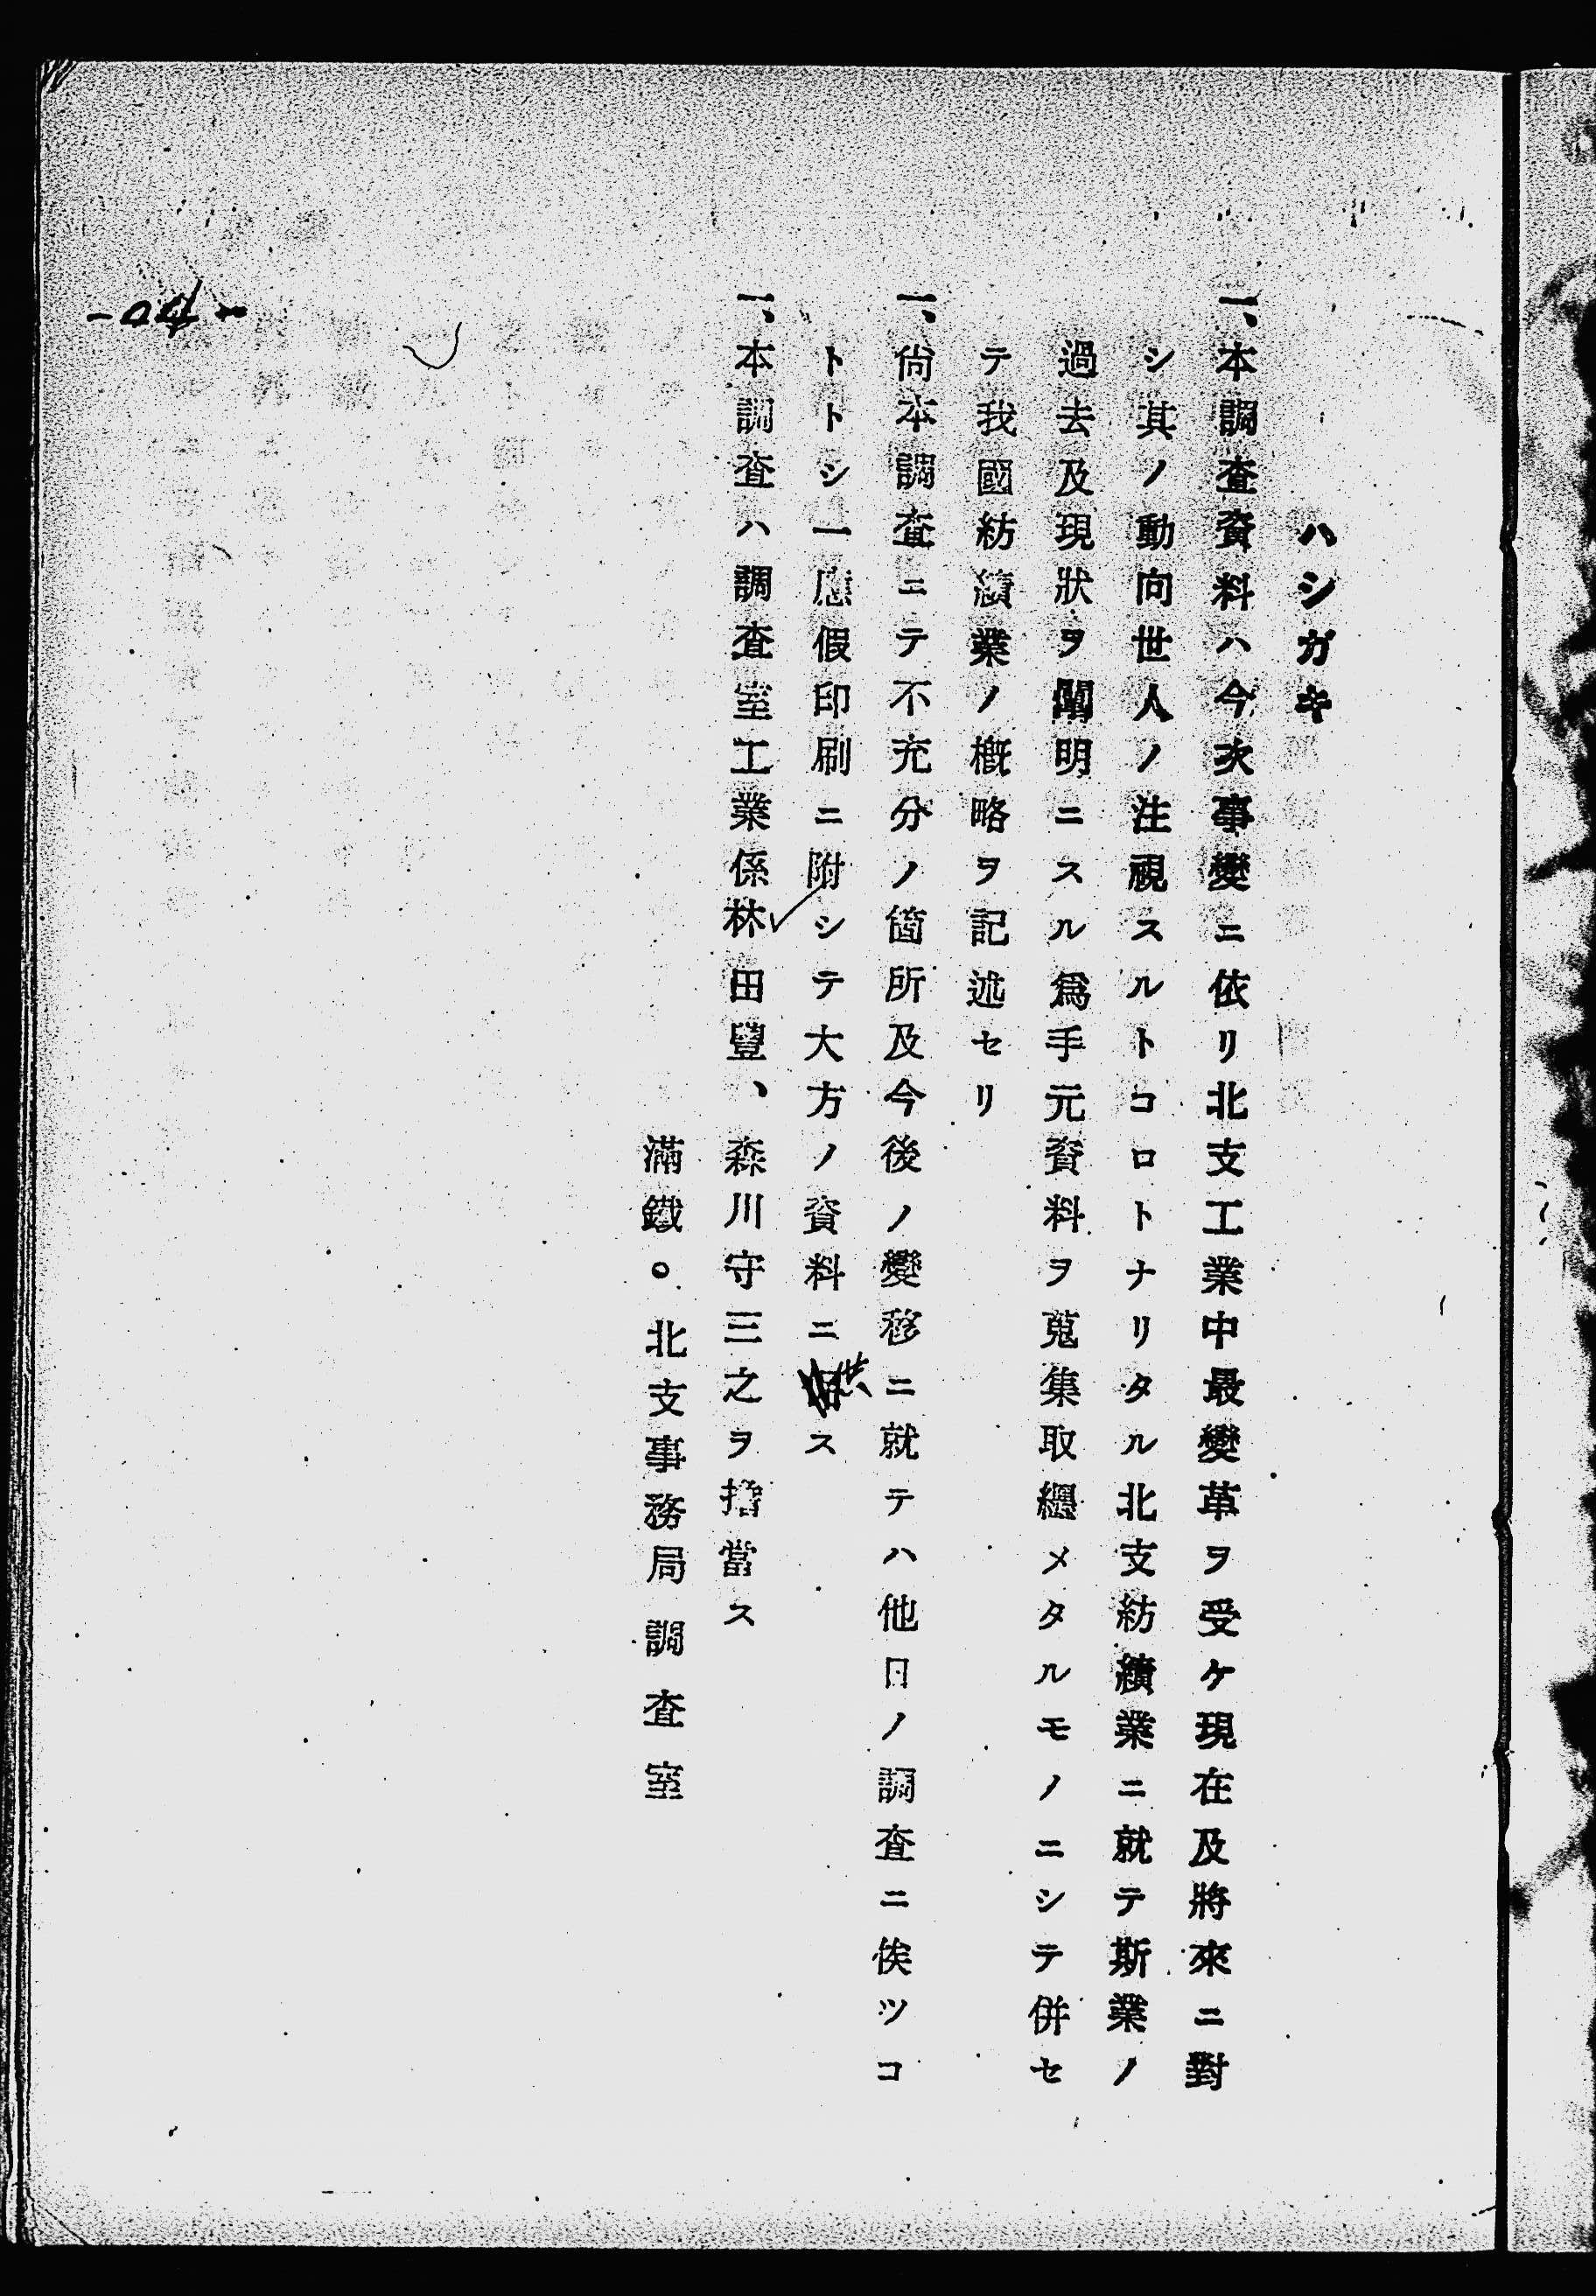 ハシガキ
一、本調査資料ハ今次事變ニ依リ北支工業中最變革ヲ受ケ現在及將來ニ對
シ其ノ動向世人ノ注視スルトコロトナリタル北支紡績業ニ就テ斯業ノ
過去及現狀ヲ闡明ニスル爲手元資料ヲ蒐集取纒メタルモノニシテ併セ
テ我國紡績業ノ槪略ヲ記述セリ
一、尙本調査ニテ不充分ノ箇所及今後ノ變移ニ就テハ他日ノ調査ニ俟ツコ
トトシ一應假印刷ニ附シテ大方ノ資料ニ供ス
一、本調査ハ調査室工業係林田豐、森川守三之ヲ擔當ス
滿鐵。北支事務局調査室